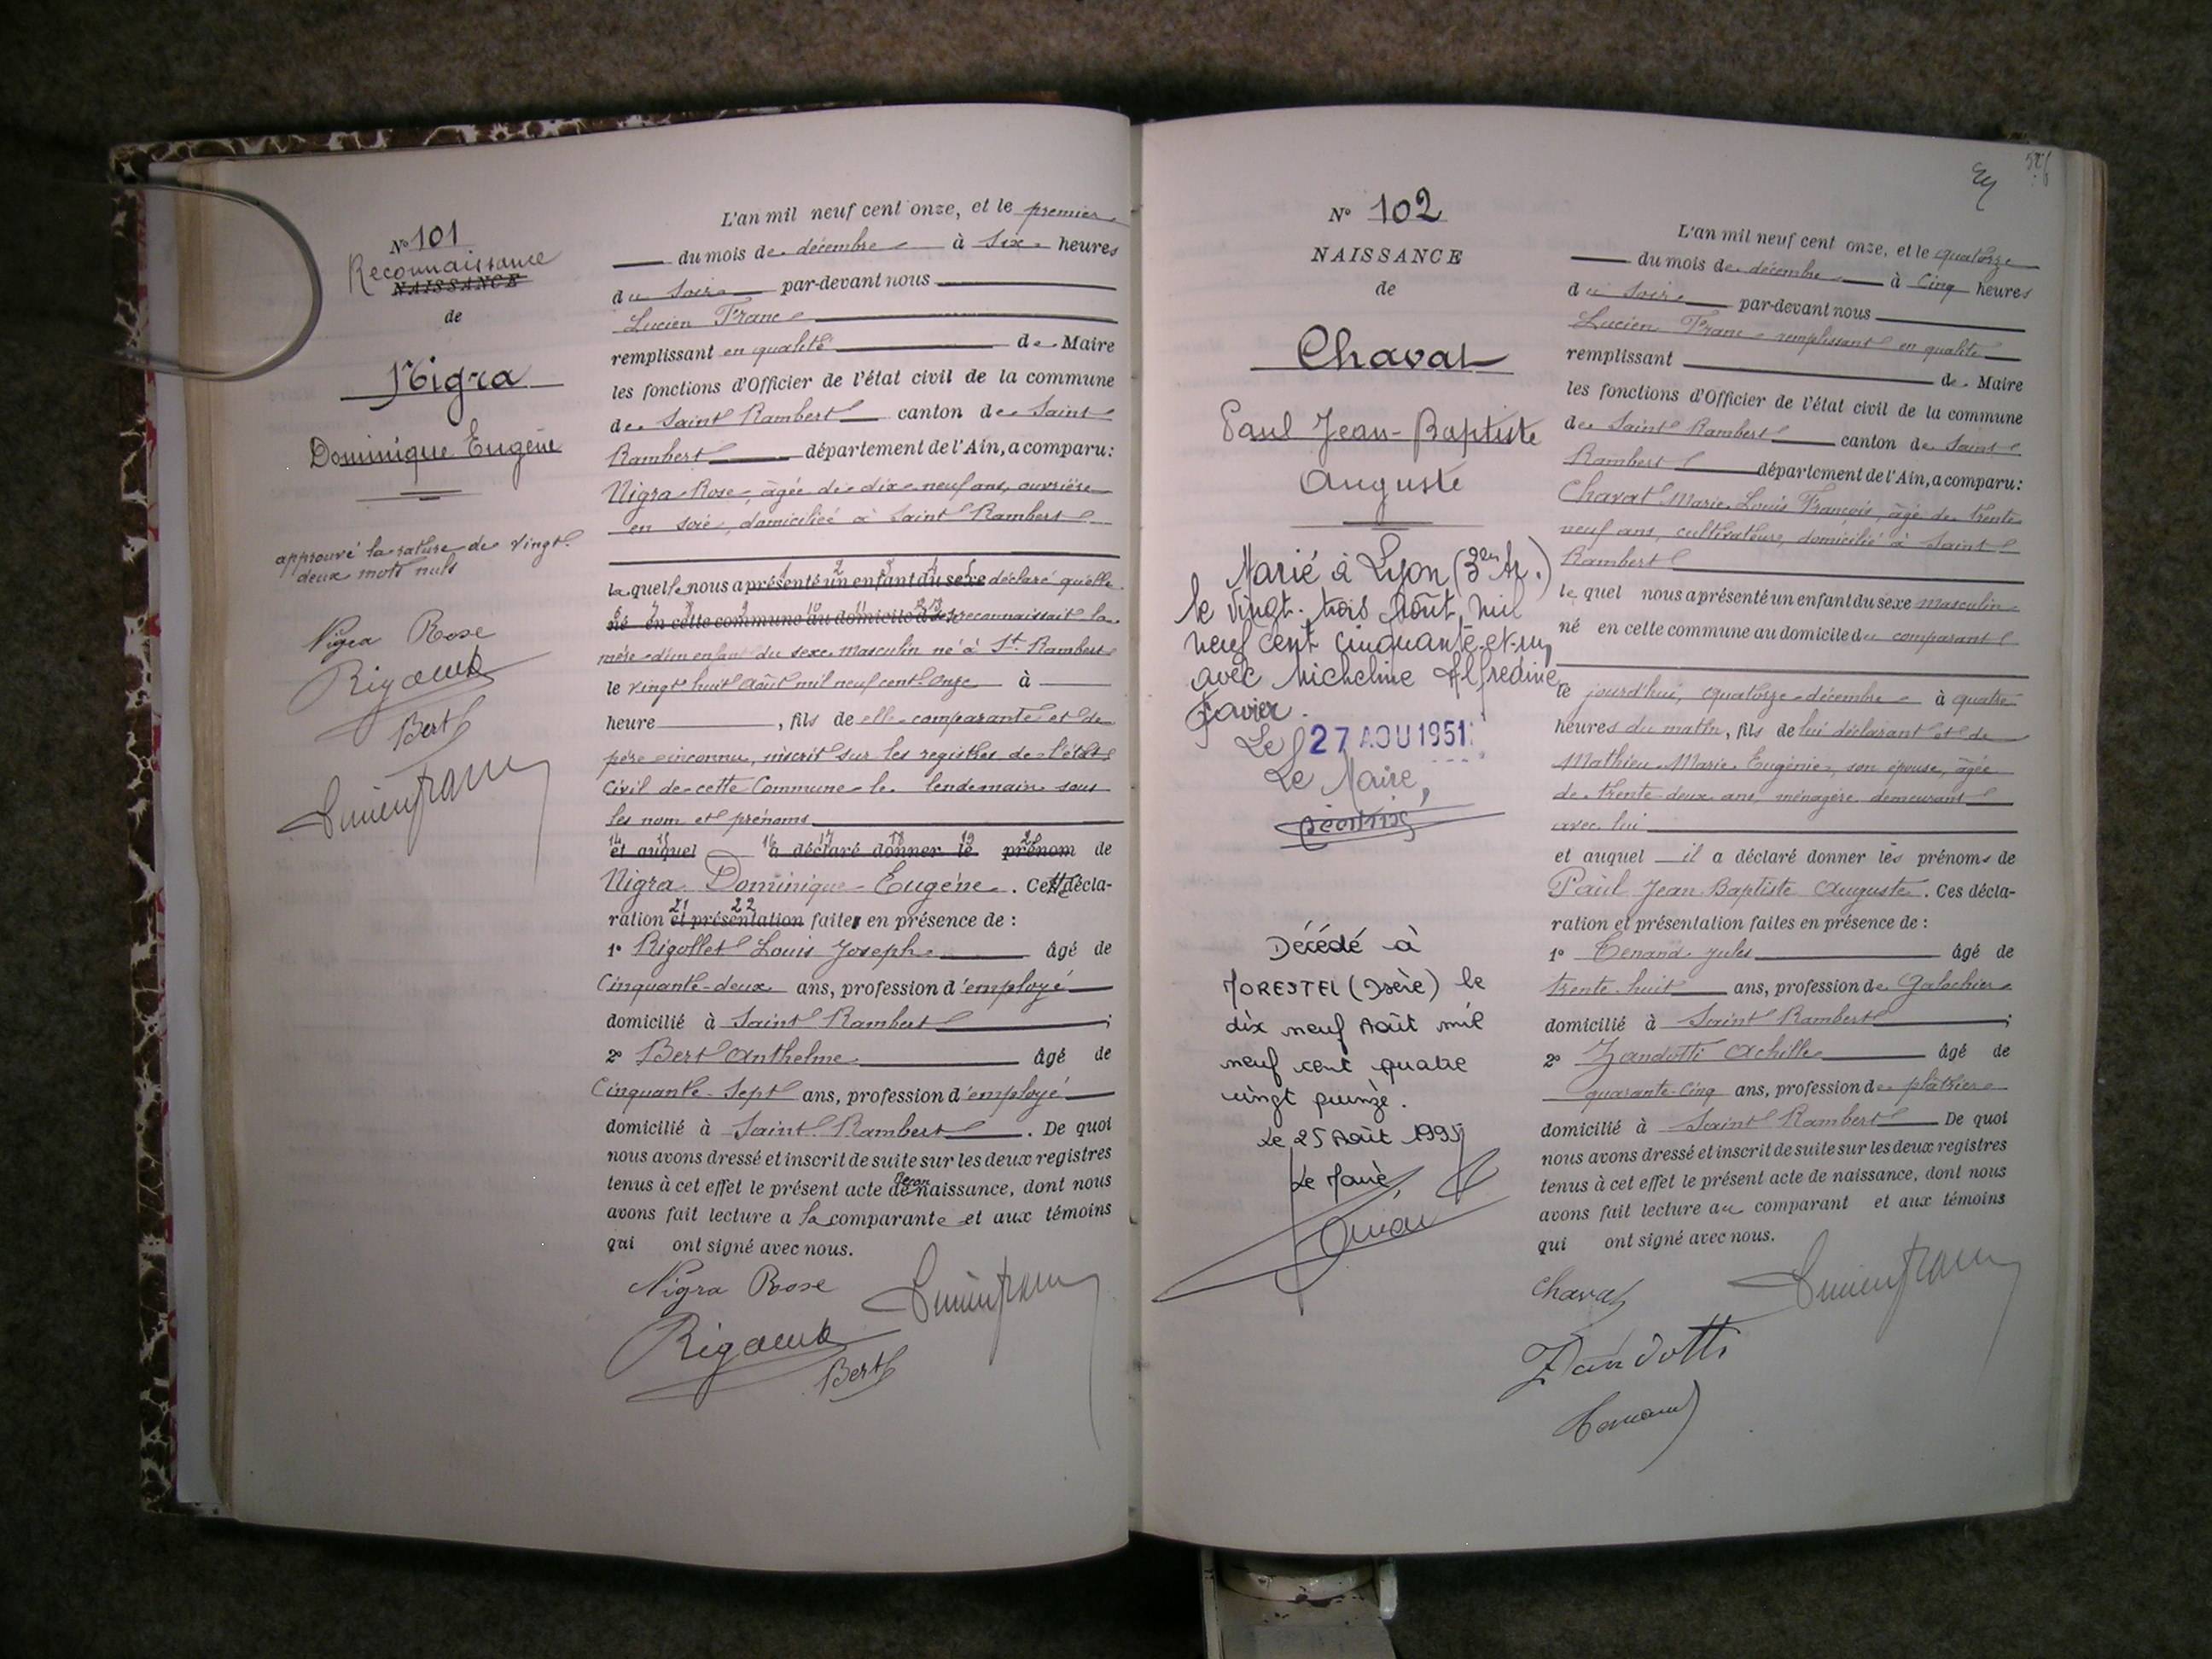 N° 101
Reconnaissance
NAISSANCE
de
Nigra
Dominique Eugène
approuvé la rature de vingt
deux mots nuls
Nigra Rose
Bert
Lucien Franc
L'an mil neuf cent onze, et le premier
du mois de décembre à six heures
du soir par-devant nous
Lucien Franc
remplissant en qualité de Maire
les fonctions d'Officier de l'état civil de la commune
de Saint Rambert canton de Saint
Rambert département de l'Ain, a comparu:
Nigra Rose, âgée de dix-neuf ans, ouvrière
en soie, domiciliée à Saint Rambert
laquelle nous a présenté un enfant du sexe déclaré qu'elle
né en cette commune au domicile d reconnaissait la
mère d'un enfant du sexe masculin né à St. Rambert
le vingt huit août mil neuf cent onze à
heure , fils de elle comparante et de
père inconnu, inscrit sur les registres de l'état
civil de cette Commune le lendemain sous
les nom et prénoms
et auquel a déclaré donner le prénom de
Nigra Dominique Eugène. Cette décla-
ration et présentation faite en présence de :
1° Rigollet Louis Joseph âgé de
Cinquante-deux ans, profession d'employé
domicilié à Saint Rambert ;
2° Bert Anthelme âgé de
Cinquante-sept ans, profession d'employé
domicilié à Saint Rambert. De quoi
nous avons dressé et inscrit de suite sur les deux registres
tenus à cet effet le présent acte de naissance, dont nous
avons fait lecture a la comparante et aux témoins
qui ont signé avec nous.
Nigra Rose
Lucien Franc
Bert
N° 102
NAISSANCE
de
Chavat
Paul Jean-Baptiste
Auguste
Marié à Lyon (3e Ar.)
le vingt-trois Août mil
neuf cent cinquante-et-un
avec Micheline Alfredine
Favier.
Le 27 AOU 1951
Le Maire,
Décédé à
MORESTEL (Isère) le
dix neuf Août mil
neuf cent quatre
vingt quinze.
Le 25 Août 1995
Le Maire,
L'an mil neuf cent onze, et le quatorze
du mois de décembre à cinq heures
du soir par-devant nous
Lucien Franc remplissant en qualité
remplissant de Maire
les fonctions d'Officier de l'état civil de la commune
de Saint Rambert canton de Saint
Rambert département de l'Ain, a comparu:
Chavat Marie Louis François, âgé de trente
neuf ans, cultivateur, domicilié à Saint
Rambert
lequel nous a présenté un enfant du sexe masculin
né en cette commune au domicile du comparant
ce jourd'hui, quatorze décembre à quatre
heures du matin, fils de lui déclarant et de
Mathieu Marie Eugénie, son épouse, âgée
de trente-deux ans, ménagère demeurant
avec lui
et auquel il a déclaré donner les prénoms de
Paul Jean Baptiste Auguste. Ces décla-
ration et présentation faites en présence de :
1° Tenand Jules âgé de
trente huit ans, profession de Galochier
domicilié à Saint Rambert ;
2° Zandotti Achille âgé de
quarante-cinq ans, profession de plâtrier
domicilié à Saint Rambert De quoi
nous avons dressé et inscrit de suite sur les deux registres
tenus à cet effet le présent acte de naissance, dont nous
avons fait lecture au comparant et aux témoins
qui ont signé avec nous.
Chavat
Lucien Franc
Zandotti
Tenand